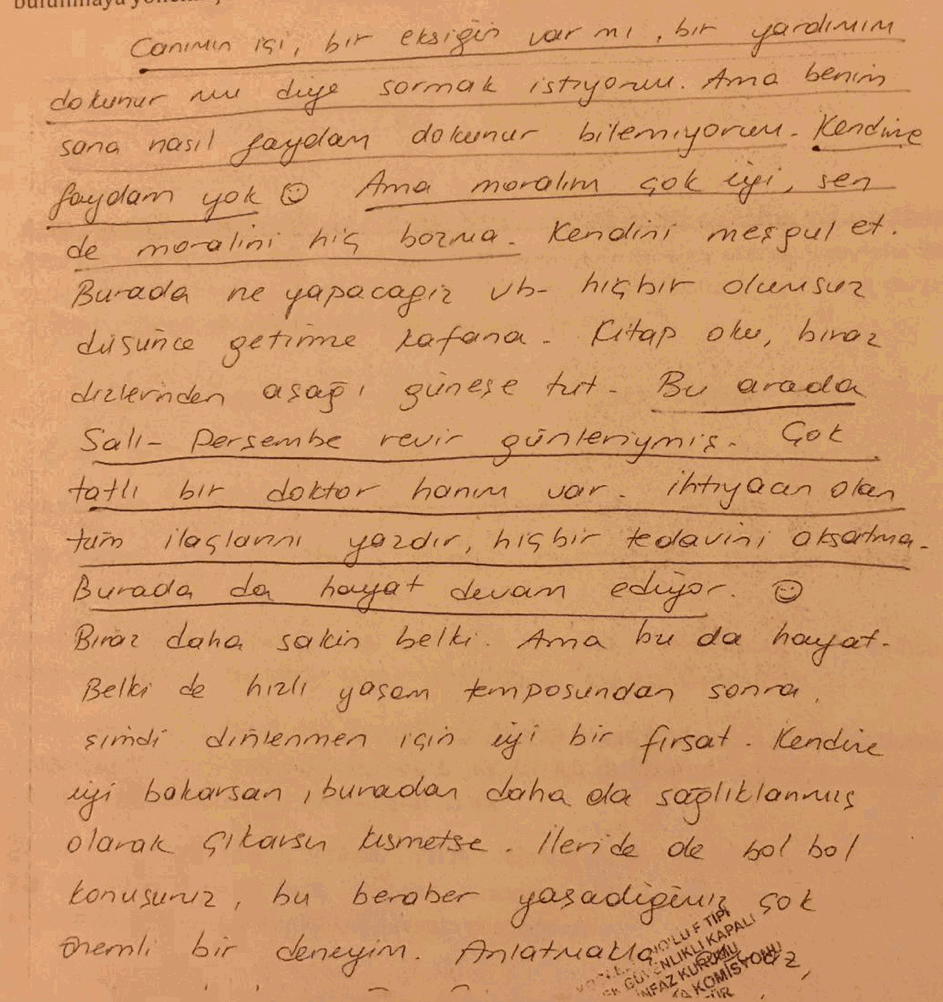 bulunmaya
Canımın içi, bir eksiğin var mı, bir yardımım
dokunur mu diye sormak istiyorum. Ama benim
sana nasıl faydam dokunur bilemiyorum. Kendime
faydam yok ☺ Ama moralim çok iyi, sen
de moralini hiç bozma. Kendini meşgul et.
Burada ne yapacağız vb. hiçbir olumsuz
düşünce getirme kafana. Kitap oku, biraz
dizlerinden aşağı güneşe tut. Bu arada
Salı- Perşembe revir günleriymiş. Çok
tatlı bir doktor hanım var. İhtiyacın olan
tüm ilaçlarını yazdır, hiçbir tedavini aksatma.
Burada da hayat devam ediyor. ☺
Biraz daha sakin belki. Ama bu da hayat.
Belki de hızlı yaşam temposundan sonra,
şimdi dinlenmen için iyi bir fırsat. Kendine
iyi bakarsan, buradan daha da sağlıklanmış
olarak çıkarsın kısmetse. İleride de bol bol
konuşuruz, bu beraber yaşadığımız çok
önemli bir deneyim. Anlatmakla
F TİPİ
GÜVENLİKLİ KAPALI
İNFAZ KURUMU
KOMİSYONU